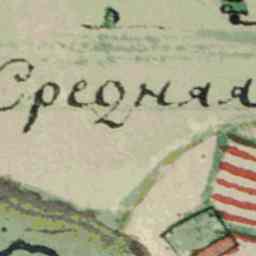 Средняя